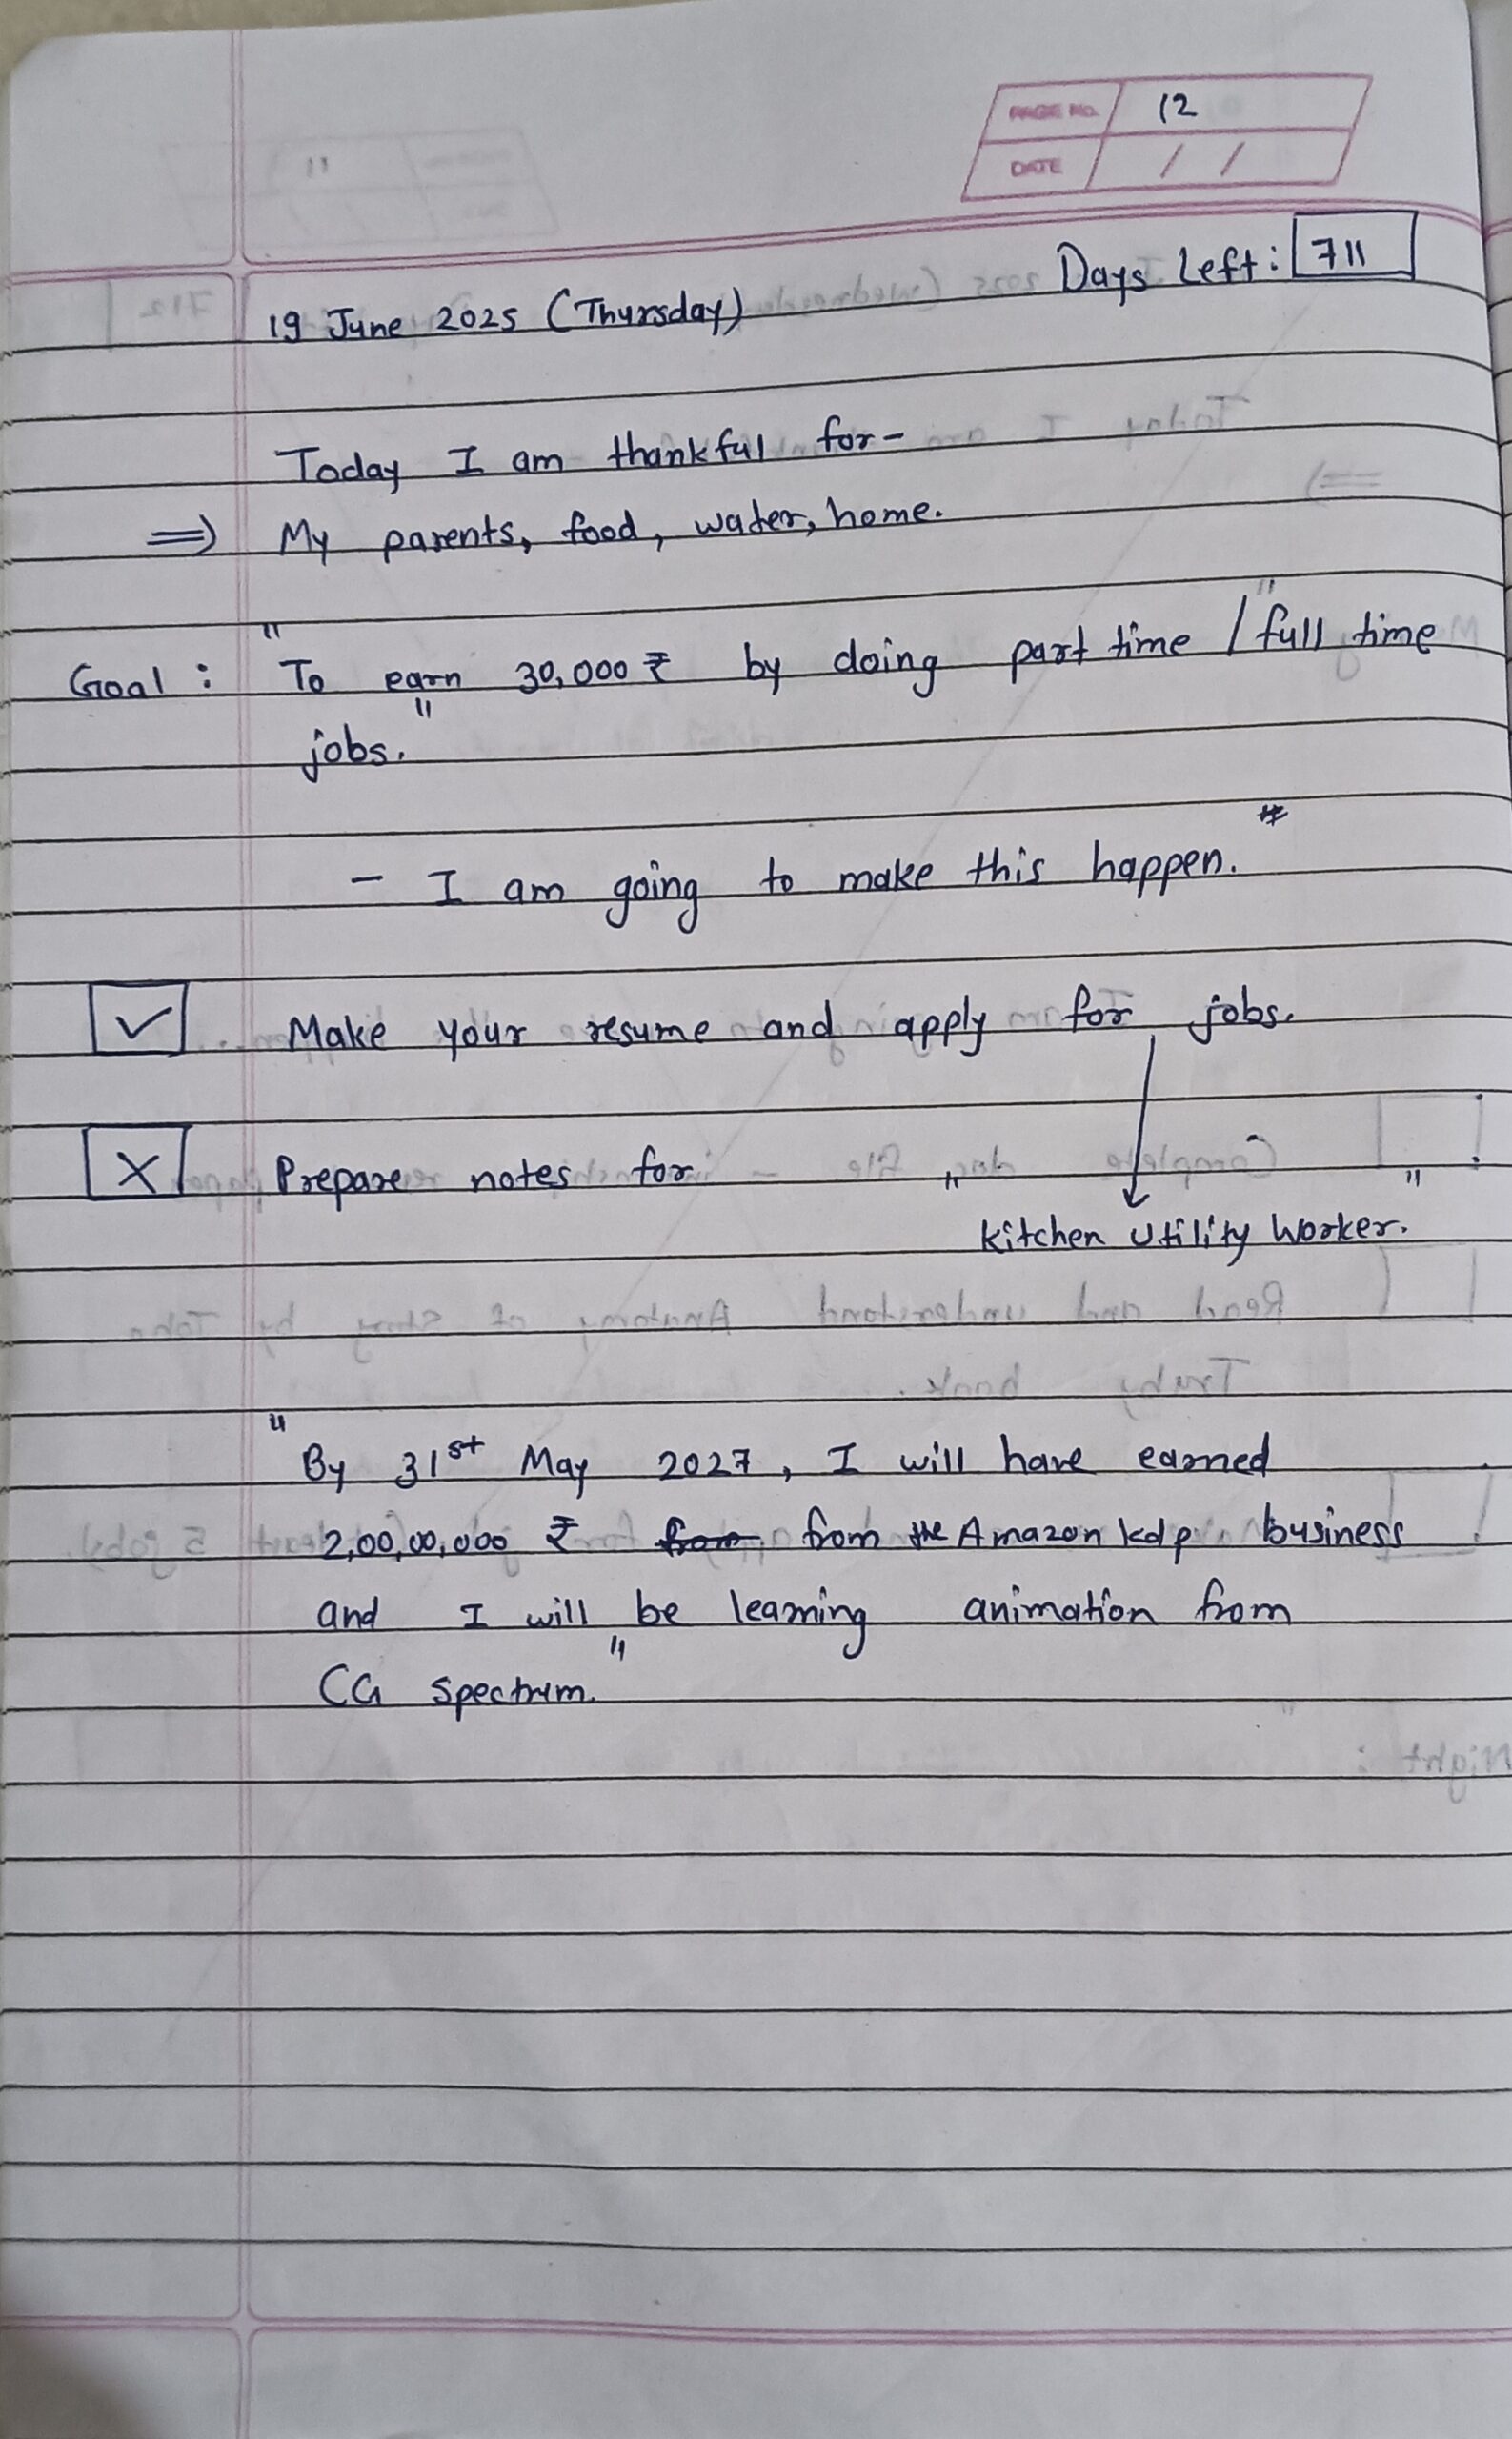 PAGE NO. 12
DATE / /
Days Left: 711
19 June 2025 (Thursday)
Today I am thankful for-
⇒ My parents, food, water, home.
Goal : "To earn 30,000 ₹ by doing part time / "full time
jobs."
- I am going to make this happen. #
✓ Make your resume and apply for jobs.
X Prepare notes for
"Kitchen Utility Worker."
"By 31st May 2027, I will have earned
2,00,00,000 ₹ from from the Amazon kdp business
and I will be learning animation from
CG spectrum."